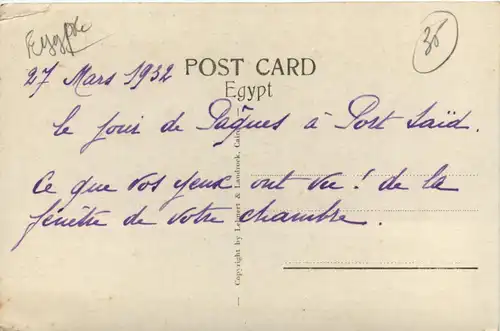 Egypte
36
27 Mars 1932
POST CARD
Egypt
le jour de Pâques à Port Saïd.
Ce que vos yeux ont vu ! de la
fenêtre de votre chambre.
Copyright by Lehnert & Landrock, Cairo